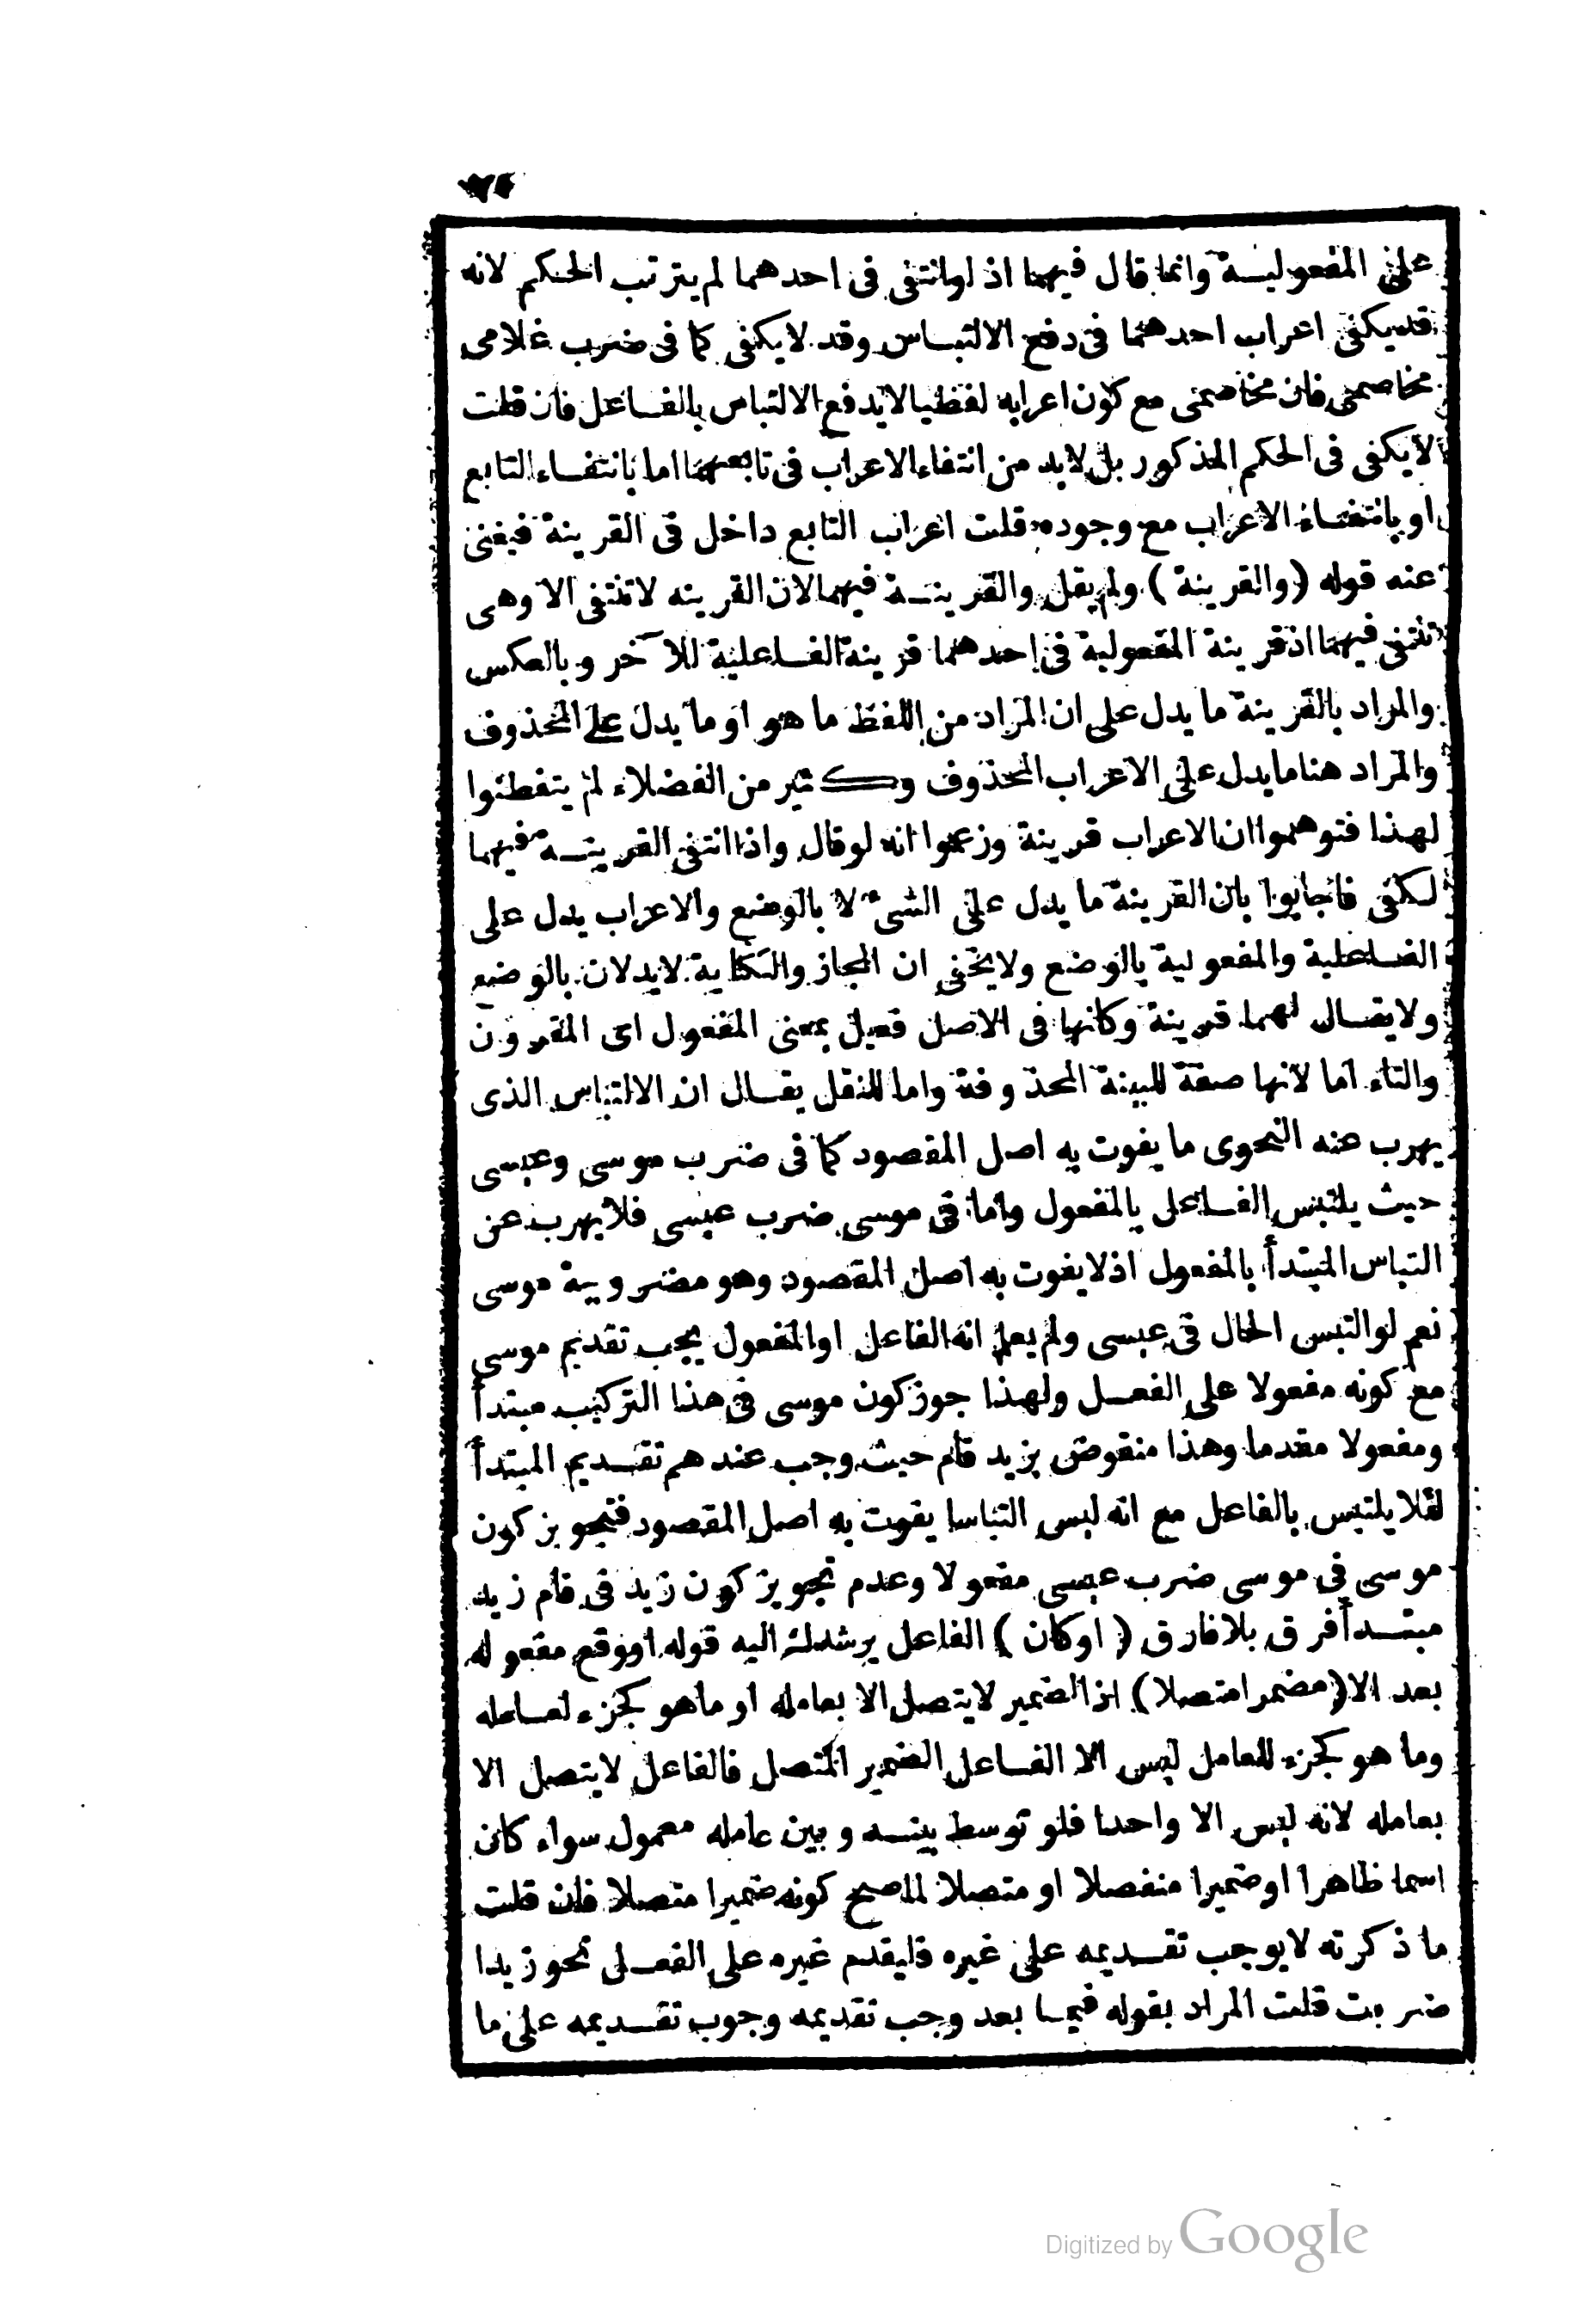 على المفعولية وانما قال فيهما اذ لو انتفى فى احدهما لم يترتب الحكم لانه
قد يكفى اعراب احدهما فى دفع الالتباس وقد لا يكفى كما فى ضرب غلامى
مخاصمى فان مخاصمى مع كون اعرابه لفظيا لا يدفع الالتباس بالفاعل فان قلت
لا يكفى فى الحكم المذكور بل لابد من انتفاء الاعراب فى تابعهما اما بانتفاء التابع
او بانتفاء الاعراب مع وجوده قلت اعراب التابع داخل فى القرينة فيغنى
عنه قوله (والقرينة) ولم يقل والقرينة فيهما لان القرينه لا تنتفى الا وهى
تنتفى فيهما اذ قرينة المفعولية فى احدهما قرينة الفاعلية للآخر وبالعكس
والمراد بالقرينة ما يدل على ان المراد من اللفظ ما هو او ما يدل على المحذوف
والمراد هنا ما يدل على الاعراب المحذوف وكثير من الفضلاء لم يتفطنوا
لهذا فتوهموا ان الاعراب قرينة وزعموا انه لو قال واذا انتفى القرينة فيهما
لكفى فاجابوا بان القرينة ما يدل على الشئ لا بالوضع والاعراب يدل على
الفاعلية والمفعولية بالوضع ولا يخفى ان المجاز والكناية لا يدلان بالوضع
ولا يقال لهما قرينة وكانها فى الاصل فعيل بمعنى المفعول اى المقرون
والتاء اما لانها صفة للبينة المحذوفة واما للنقل يقال ان الالتباس الذى
يهرب عنه النحوى ما يفوت به اصل المقصود كما فى ضرب موسى وعيسى
حيث يلتبس الفاعل بالمفعول واما فى موسى ضرب عيسى فلا يهرب عن
التباس المبتدأ بالمفعول اذ لا يفوت به اصل المقصود وهو مضروبية موسى
نعم لو التبس الحال فى عيسى ولم يعلم انه الفاعل او المفعول يجب تقديم موسى
مع كونه مفعولا على الفعل ولهذا جوز كون موسى فى هذا التركيب مبتدأ
ومفعولا مقدما وهذا منقوض بزيد قام حيث وجب عندهم تقديم المبتدأ
لئلا يلتبس بالفاعل مع انه ليس التباسا يفوت به اصل المقصود فتجويز كون
موسى فى موسى ضرب عيسى مفعولا وعدم تجويز كون زيد فى قام زيد
مبتدأ فرق بلا فارق (او كان) الفاعل يرشدك اليه قوله او وقع مفعوله
بعد الا (مضمرا متصلا) اذ الضمير لا يتصل الا بعامله او ما هو كجزء لعامله
وما هو كجزء للعامل ليس الا الفاعل الضمير المتصل فالفاعل لا يتصل الا
بعامله لانه ليس الا واحدا فلو توسط بينه وبين عامله معمول سواء كان
اسما ظاهرا او ضميرا منفصلا او متصلا لما صح كونه ضميرا متصلا فان قلت
ما ذكرته لا يوجب تقديمه على غيره فليقدم غيره على الفعل نحو زيدا
ضربت قلت المراد بقوله فيما بعد وجب تقديمه وجوب تقديمه على ما
Digitized by Google